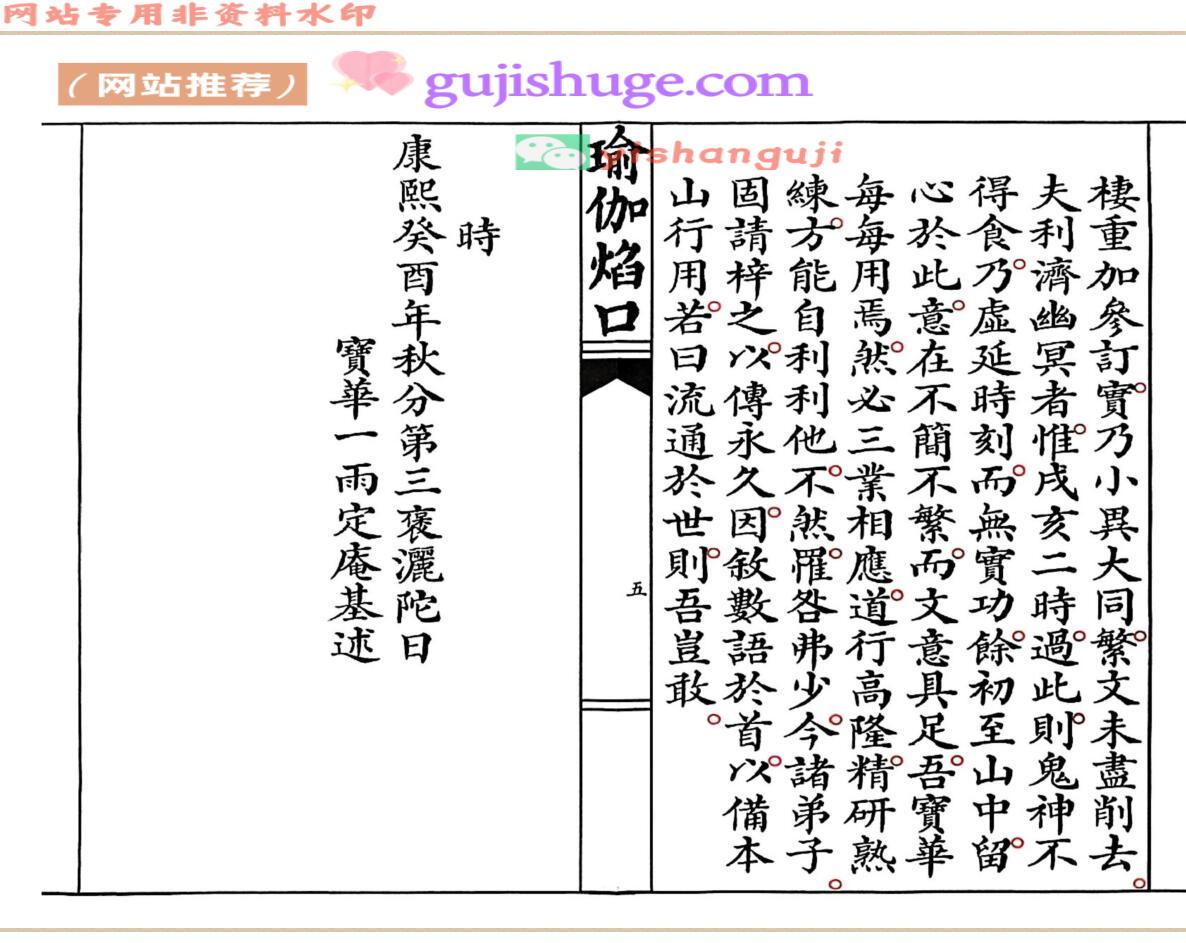 网站专用非资料水印
（网站推荐）
gujishuge.com
yishanguji
棲重加參訂。實乃小異大同。繁文未盡削去。
夫利濟幽冥者。惟戌亥二時。過此。則鬼神不
得食。乃虛延時刻。而無實功。餘初至山中。留
心於此。意在不簡不繁。而文意具足。吾寶華
每每用焉。然必三業相應。道行高隆。精研熟
練。方能自利利他。不然。罹咎弗少。今諸弟子。
固請梓之。以傳永久。因敘數語於首。以備本
山行用。若曰流通於世。則吾豈敢。
瑜伽焰口
五
時
康熙癸酉年秋分第三褒灑陀日
寶華一雨定庵基述